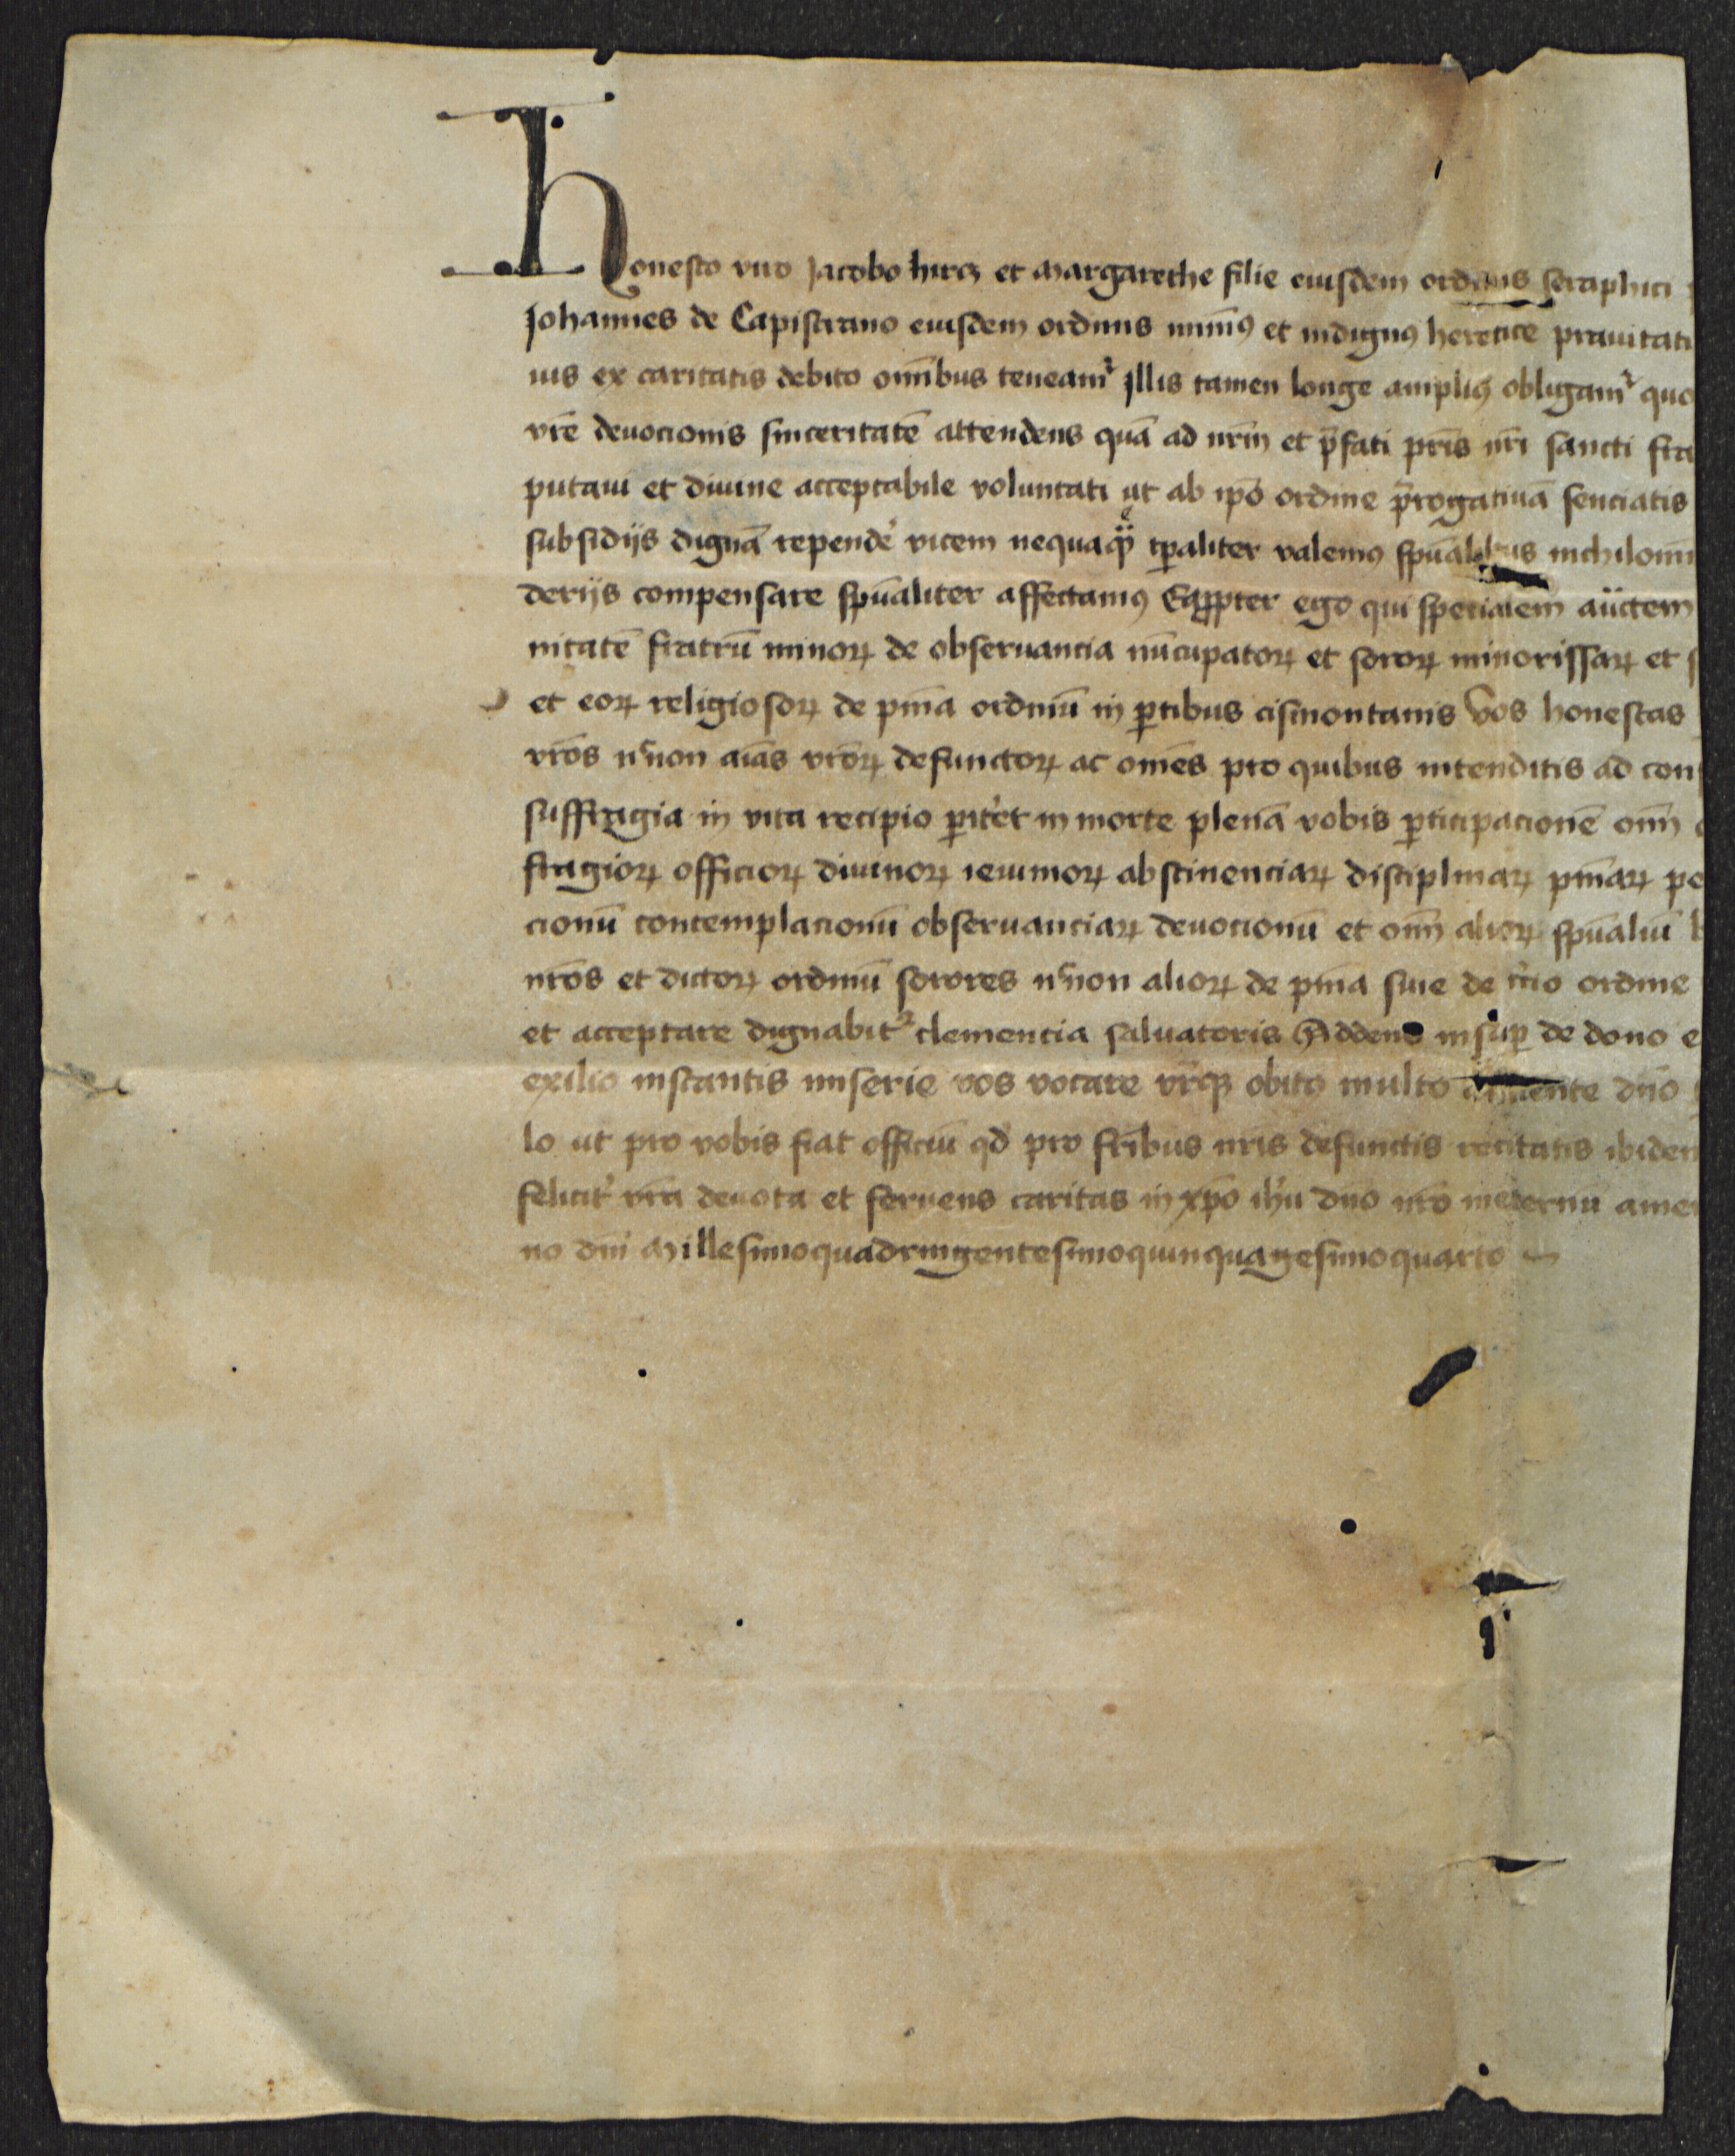 Honesto viro Jacobo hircz et Margarethe filie eiusdem ordinis seraphici
Johannes de Capistrano eiusdem ordinis minimꝰ et indignꝰ heretice prauitati
uis ex caritatis debito om̄ibus teneamᷣ illis tamen longe ampliꝰ obligamᷣ quo
vr̄e deuocionis sinceritatē attendens quā ad nr̄m et p̄fati pr̄is nr̄i sancti fra
putaui et diuine acceptabile voluntati ut ab ip̄o ordine p̄rogatiuā senciatis
subsidijs dignā repende᷑ vicem nequaqͣꝫ tꝑaliter valemꝰ spūalibus nichilomi
derijs compensare spūaliter affectamꝰ Eaꝓpter ego qui specialem auctem
nitatē fratrū minoꝝ de obseruancia nūcupatoꝝ et soroꝝ minorissaꝝ et s
et eoꝝ religiosoꝝ de pn̄ia ordinū in ꝑtibus cismontanis Vos honestas
vr̄os n̄cnon aīas vr̄oꝝ defunctoꝝ ac om̄es pro quibus intenditis ad con
suffragia in vita recipio ꝑit᷑et in morte plenā vobis ꝑticipacionē om̄
fragioꝝ officioꝝ diuinoꝝ ieiunioꝝ abstinenciaꝝ disciplinaꝝ pn̄iaꝝ pe
cionū contemplacionū obseruanciaꝝ deuocionū et om̄ alioꝝ spūaliū b
nr̄os et dictoꝝ ordinū sorores n̄cnon alioꝝ de pn̄ia siue de t᷑cio ordine
et acceptare dignabitᷣ clemencia saluatoris Addens insuꝑ de dono e
exilio instantis miserie vos vocare vr̄oqꝫ obitu multo annuente dn̄o
lo ut pro vobis fiat officiū qd̓ pro fr̄ibus nr̄is defunctis recitatis ibidem
felicit᷑ vr̄a deuota et feruens caritas in xp̄o ih̄u dn̄o nr̄o ineternū amen
no dn̄i Millesimoquadringentesimoquinquagesimoquarto